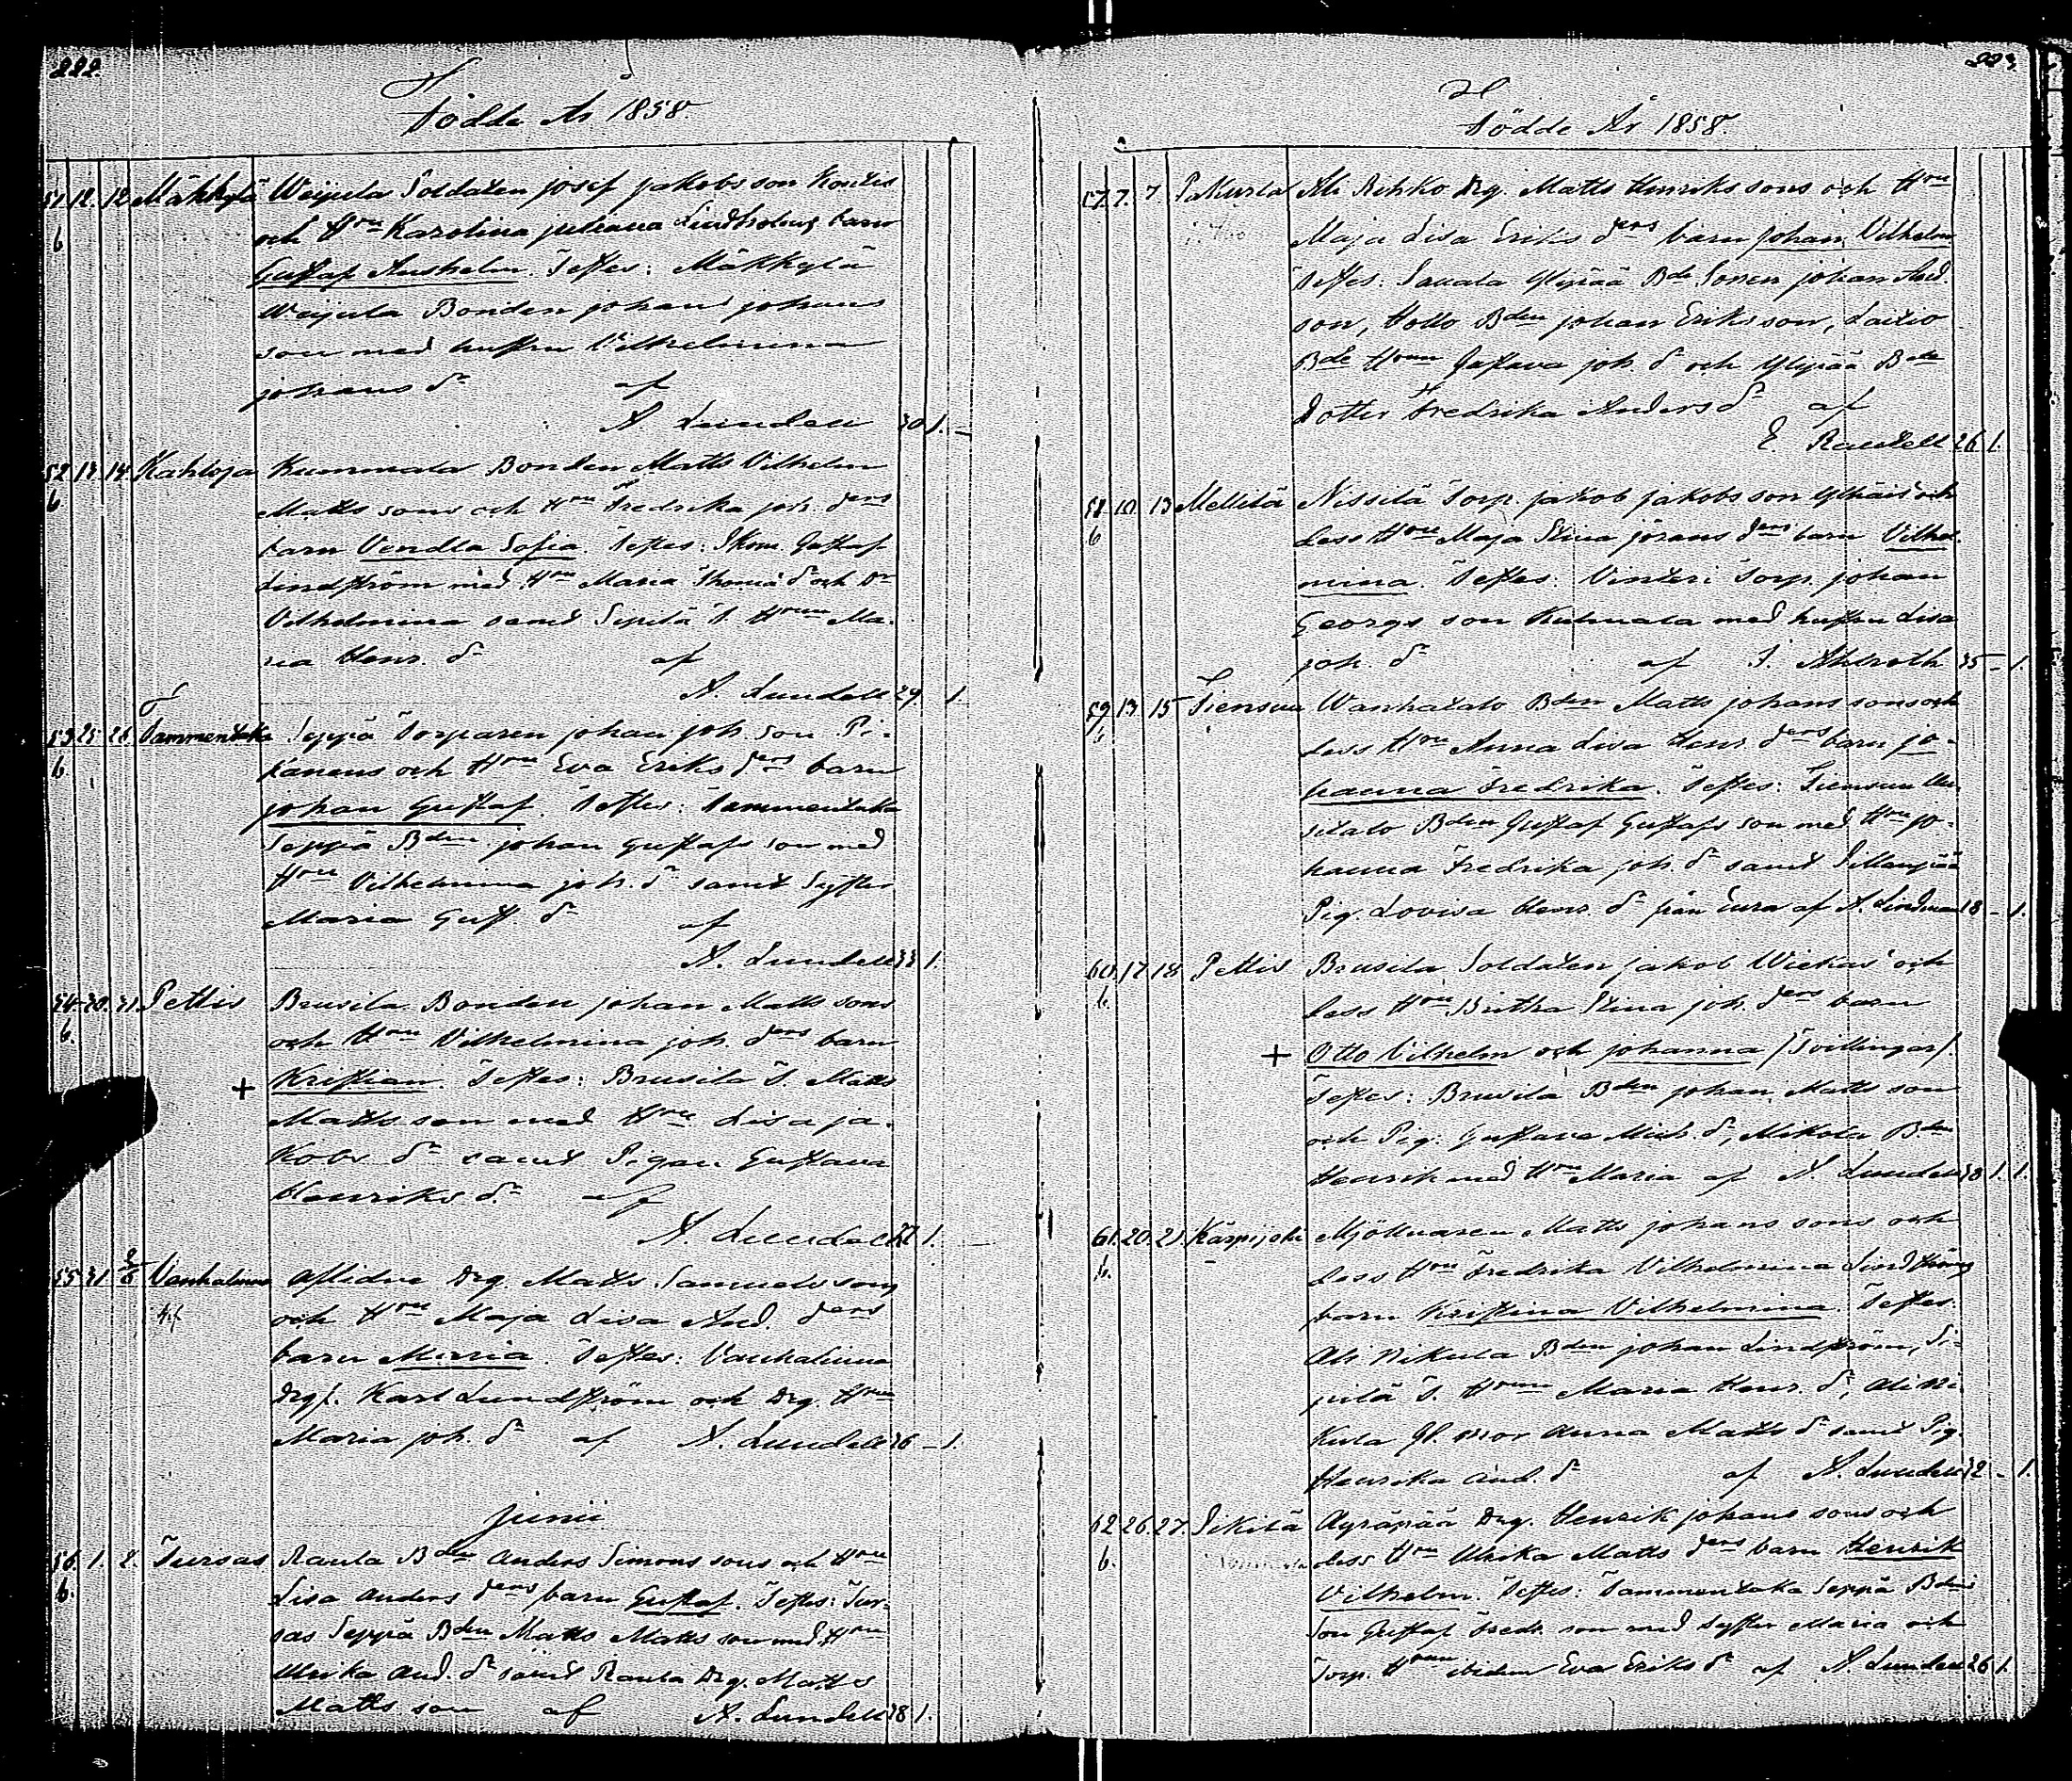 222.
Födde År 1858.
51. 12. 12. Mäkkylä Weijula Soldaten Josef Jakobs son
b och Hru Karolina Juliana Lindholms barn
Gustaf Anshelm. Testes: Mäkkylä
Weijula Bonden Johan Johans
son med hustru Vilhelmina
Johans dr af
A. Lundell 30 1. –
52 13. 14. Kahloja Kummala Bonden Matts Vilhelm
b Matts sons och Hru Fredrika Joh. ders
barn Vendla Sofia. Testes: Skom. Gustaf
Lindström med Hru Maria Thomæ dr och Dr
Vilhelmina samt Sipilä T. Hrun Ma-
ria Henr. dr af
A. Lundell 29. 1.
53 25. 26. Tammentaka Seppä Torparen Johan Joh. son Pi-
b. kanens och Hru Eva Eriks ders barn
Johan Gustaf. Testes: Tammentaka
Seppä Bden Johan Gustafs son med
Hru Vilhelmina Joh. dr samt Syster
Maria Gust. dr af
A. Lundell 33 1.
54. 30. 31. Pettis Brusila Bonden Johan Matts sons
b. och Hru Vilhelmina Joh. ders barn
+ Kristian. Testes: Brusila T. Matts
Matts son med Hru Lisa Ja-
kobs dr samt Pigan Gustava
Henriks dr af
A. Lundell 22 1. –
55 31. 2/6 Vanhalinna Aflidne Drg. Matts Samuels sons
och Hru Maja Lisa And. ders
barn Maria. Testes: Vanhalinna
Drgf. Karl Lundström och Drg. Hrun
Maria Joh. dr af A. Lundell 36 – 1.
Junii
56. 1. 2. Tursas Raula Bden Anders Simons sons och Hru
b. Lisa Anders ders barn Gustaf. Testes: Tur-
sas Seppä Bden Matts Matts son med Hru
Ulrika And. dr samt Raula Drg. Matts
Matts son af A. Lundell 28 1.
223.
Födde År 1858.
57. 7. 7 Pakurla Ali Rihko Drg. Matts Henriks sons och Hru
Maja Lisa Eriks ders barn Johan Vilhelm
Testes: Sauala Ylipää Bde Sonen Johan And.
son, Hollo Bden Johan Eriks son, Laitio
Bde Hrun Gustava Joh. dr och Ylipää Bde
Dotter Fredrika Anders dr af
E. Rautell 26 1.
58. 10. 13 Mellilä Nissilä Torp. Jakob Jakobs son och
b dess Hru Maja Stina Jörans ders barn Vilhel-
mina. Testes: Vinteri Torp. Johan
Georgs son Kulmala med hustru Lisa
Joh. dr af J. Ahlroth 35 – 1.
59. 13. 15 Tiensuu Wanhatalo Bden Matts Johans sons och
b dess Hru Anna Lisa Henr. ders barn Jo-
hanna Fredrika. Testes: Tiensuu Uu-
sitalo Bden Gustaf Gustafs son med Hru Jo-
hanna Fredrika Joh. dr samt
Pig. Lovisa Henr. dr från Eura af A. Lindman 18 – 1.
60. 17. 18. Pettis Brusila Soldaten Jakob Wiekas och
b. dess Hru Britha Stina Joh. ders barn
+ Otto Vilhelm och Johanna /Tvillingar/.
Testes: Brusila Bden Johan Matts son
och Pig: Gustava Mich. dr, Mikola Bden
Henrik med Hru Maria af A. Lundell 38 1. 1.
61. 20. 21. Karpijoki Mjölnaren Matts Johans sons och
b. dess Hru Fredrika Vilhelmina Lindströms
barn Kristina Vilhelmina. Testes:
Ali Nikula Bden Johan Lindström, Si-
pilä T. Hrun Maria Henr. dr, Ali Ni-
kula Gl. mor Anna Matts dr samt Pig.
Henrika And. dr af A. Lundell 32 – 1.
62 26. 27. Pikilä Äyräpää Drg. Henrik Johans sons och
b. dess Hru Ulrika Matts ders barn Henrik
Vilhelm. Testes: Tammentaka Seppä Bdens
Son Gustaf Fredr. son med Syster Maria och
Torp. Hrun ibidem Eva Eriks dr af A. Lundell 26 1.